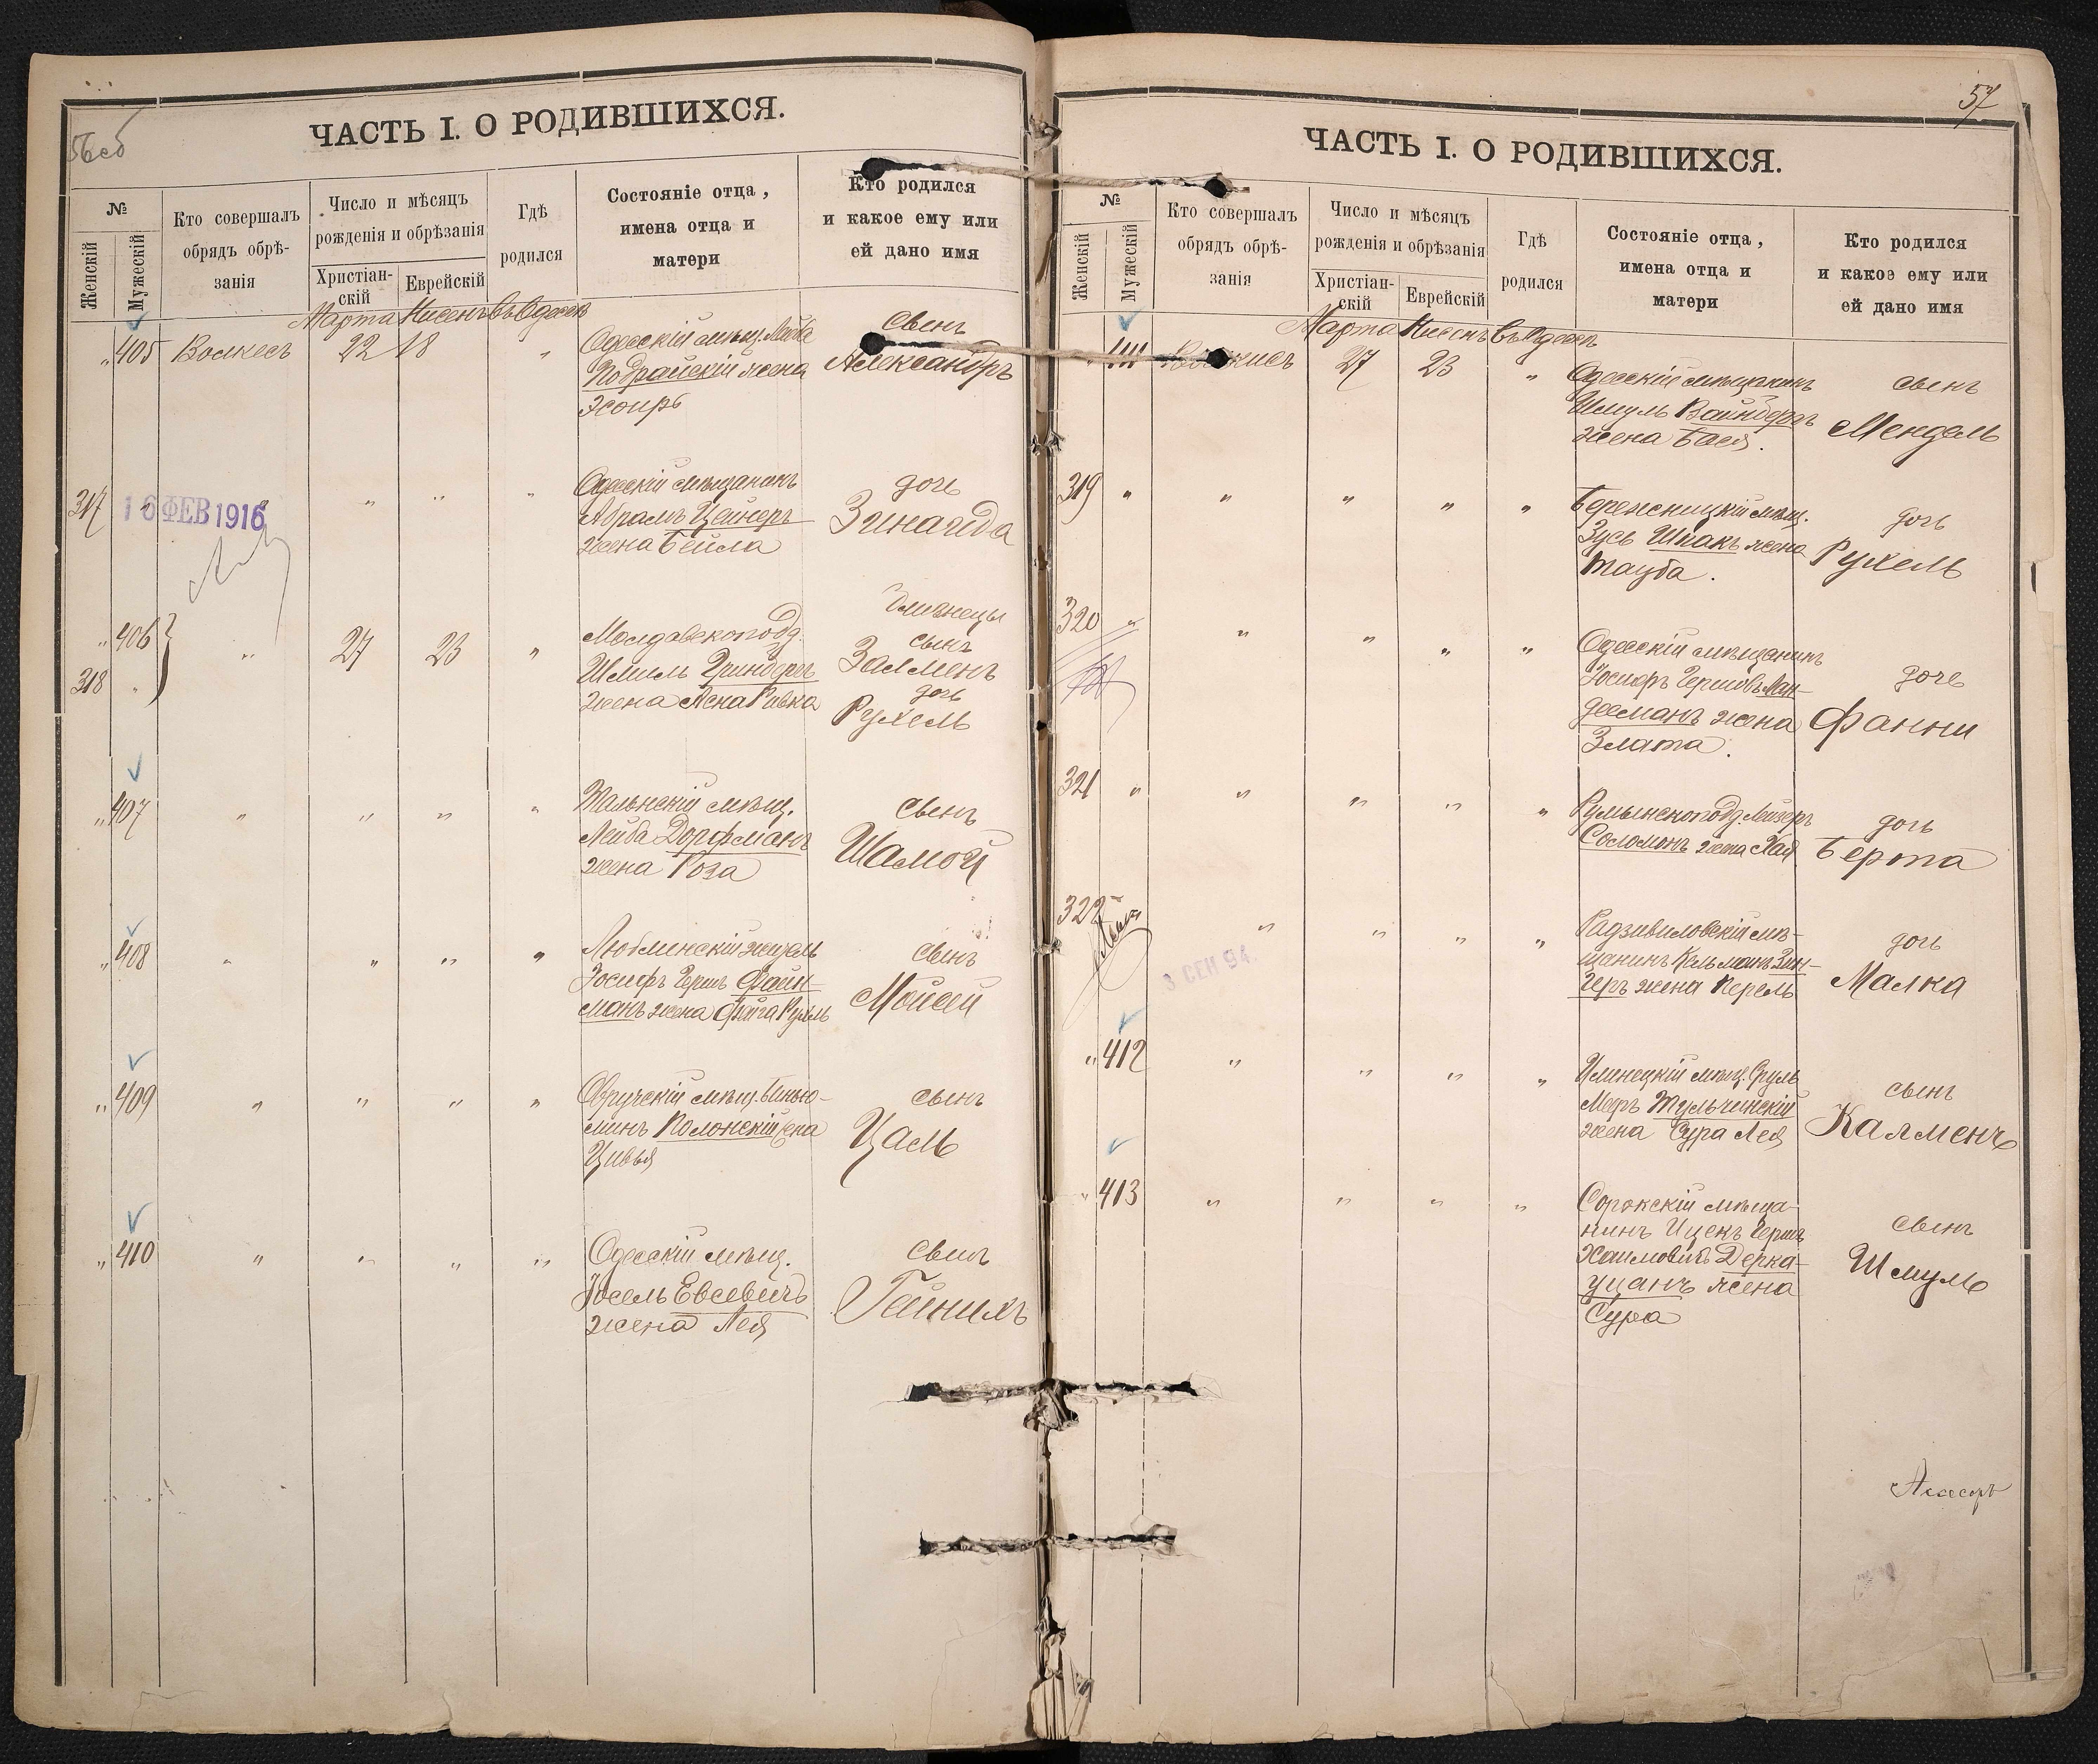 56об
ЧАСТЬ I. О РОДИВШИХСЯ.
№
Женскій
Мужескій
Кто совершалъ
обрядъ обрѣ-
занія
Число и мѣсяцъ
рожденія и обрѣзанія
Христіан-
скій
Еврейскій
Гдѣ
родился
Состояніе отца,
имена отца и
матери
Кто родился
и какое ему или
ей дано имя
Марта Нисенъ Въ Одессѣ
„ 405 22 18 „
Одесскій мѣщ. Лейба
жена
Эсѳирь
сынъ
Александръ
317 „ „ „ „
16 ФЕВ 1916
Одесскій мѣщанинъ
Абрамъ Цейнеръ
жена Бейла
дочь
Зинаида
„ 406
318 „
„ 27 23 „
Молдавскоподд.
Шмиль Гринбергъ
жена Асна Ривка
близнецы
сынъ
Залменъ
дочь
Рухель
„ 407 „ „ „ „
Тальнскій мѣщ.
Лейба Дорфманъ
жена Роза
сынъ
Шамой
„ 408 „ „ „ „
Люблинскій житель
Іосифъ Гершъ Файн-
манъ жена Фейга Рухль
сынъ
Мойсей
„ 409 „ „ „ „
Овручскій мѣщ. Бинью-
минъ Полонскій жена
Цивья
сынъ
Цаль
„ 410 „ „ „ „
Одесскій мѣщ.
Іосель Евсевичъ
жена Лея
сынъ
Гейнихъ
57
ЧАСТЬ I. О РОДИВШИХСЯ.
№
Женскій
Мужескій
Кто совершалъ
обрядъ обрѣ-
занія
Число и мѣсяцъ
рожденія и обрѣзанія
Христіан-
скій
Еврейскій
Гдѣ
родился
Состояніе отца,
имена отца и
матери
Кто родился
и какое ему или
ей дано имя
Марта Нисенъ Въ Одессѣ
„ 411 27 23 „
Одесскій мѣщанинъ
Шмуль Вайнбергъ
жена Бася.
сынъ
Мендель
319 „ „ „ „ „
Бережницкій мѣщ.
Зусь Шпакъ жена
Тауба.
дочь
Рухель
320 „ „ „ „ „
Одесскій мѣщанинъ
Іосифъ Гершовъ Лан-
десманъ жена
Злата.
дочь
Фанни
321 „ „ „ „ „
Румынскоподд. Лейзеръ
Соломонъ жена Хая
дочь
Берта
322 „ „ „ „
3 СЕН 94.
Радзивиловскій мѣ-
щанинъ Кельманъ Зин-
геръ жена Перель
дочь
Малка
„ 412 „ „ „ „
Илинецкій мѣщ. Сруль
Мееръ Тульчинскій
жена Сура Лея
сынъ
Калменъ
„ 413 „ „ „ „
Сорокскій мѣща-
нинъ Ицекъ Гершъ
Хаимовичъ Дерка-
уцанъ жена
Сура
сынъ
Шмуль